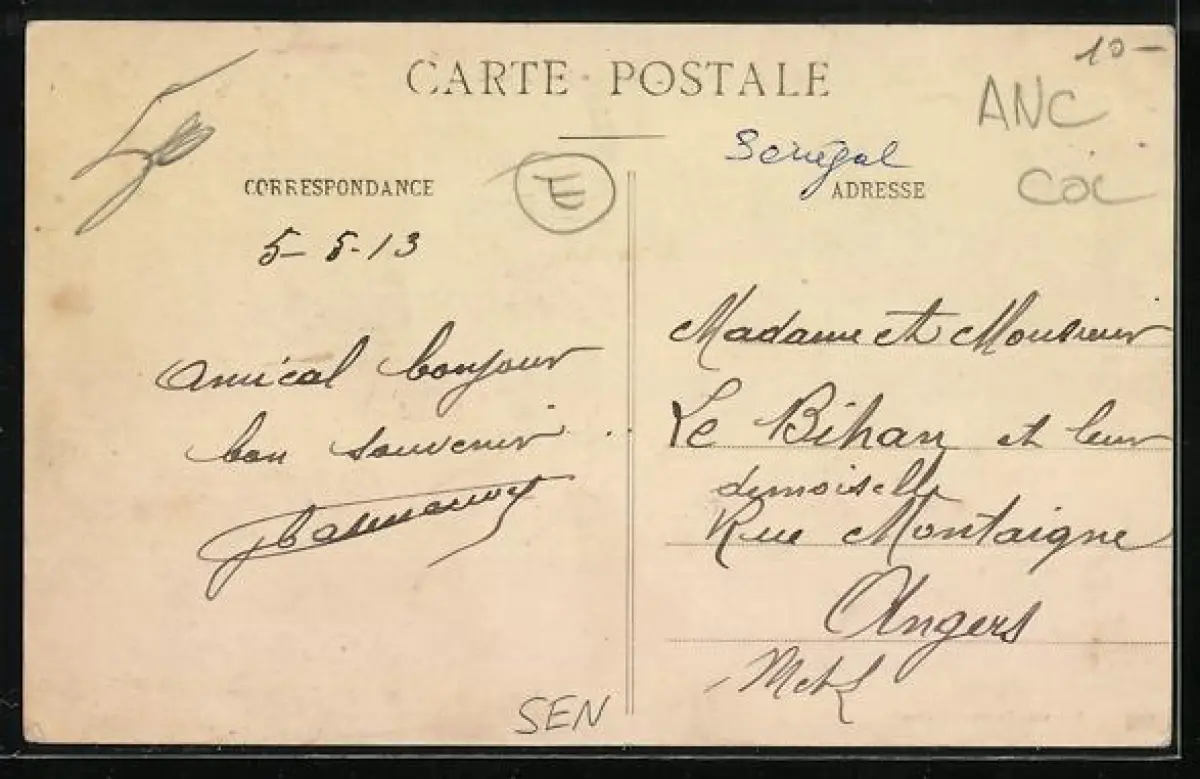 10-
CARTE POSTALE
ANC
COL
Sénégal
E
CORRESPONDANCE
ADRESSE
5-5-13
Amical bonjour
bon souvenir
Madame et Monsieur
Le Bihan et leur
demoiselle
Rue Montaigne
Angers
SEN